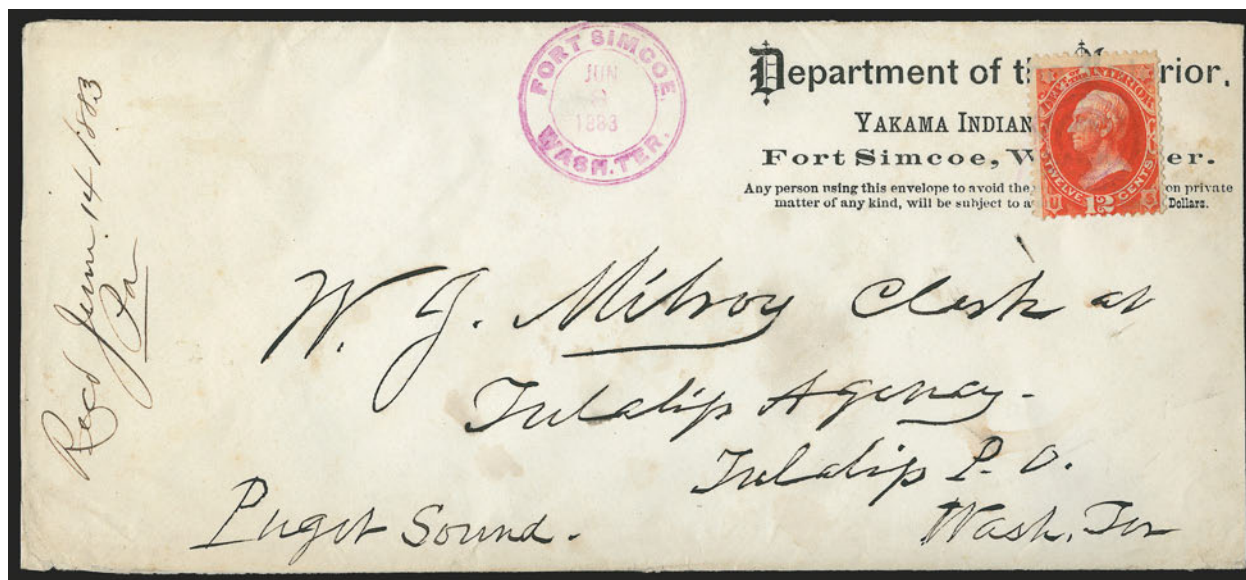 FORT SIMCOE.
JUN
1883
WASH. TER.
Department of t rior,
YAKAMA INDIAN
Fort Simcoe, W er.
Any person using this envelope to avoid the on private
matter of any kind, will be subject to a Dollars.
DEPT. OF THE INTERIOR
TWELVE 12 CENTS
U S
Recd June 14 1883
Pa
W. J. Milroy Clerk at
Tulalip Agency.
Tulalip P. O.
Puget Sound.
Wash. Ter